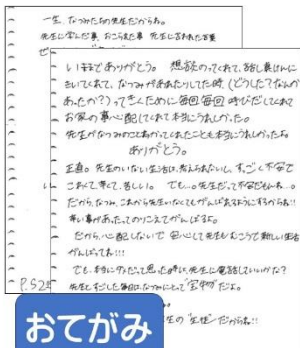 一生、なつみたちの先生だからね。
先生に学んだ事、おこられた事、先生に言われた言葉
ぜ
いままでありがとう。 想談のってくれて、話し真けんに
きいてくれて、なつみが あれたりしてた時、(どうした?なんか
あったか?)ってきくために毎回毎回呼びだしてくれて
お家の事心配してくれて本当にうれしかった。
先生がなつみのことわかってくれたことも本当にうれしかったよ。
ありがとう。
正直。先生のいない生活は、考えられないし、すっごく不安で
こわくて、辛く、苦しい。 でも…。先生だって不安だもんね…。
だから、なつみ、これから先生いなくてもがんばれるようにするからね!!
辛い事があったってのりこえてがんばるよ。
だから、心配しないで 安心して先生もむこうで新しい生活
がんばってね!!!
でも、本当に辛いって思った時は、先生に電話していいかな?
先生とすごした毎日は、なつみにとって"宝物"だよ。
P.S2
先生の"生徒"だからね!!
おてがみ